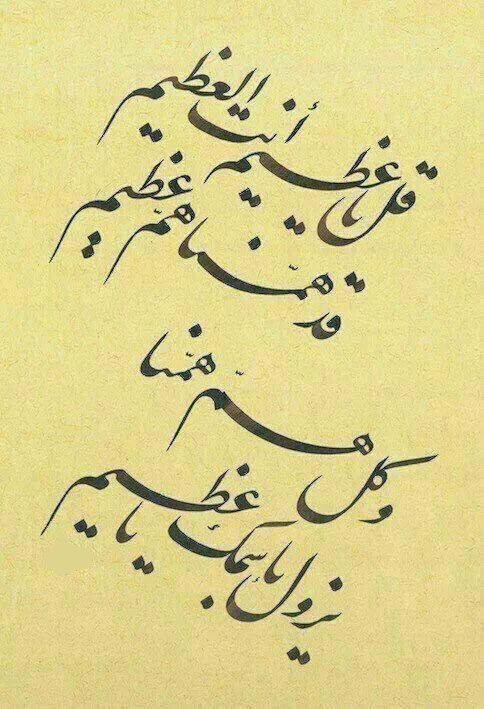 قل يا عظيم أنت العظيم
قد همّنا همّ عظيم
وكل همّ همّنا
يزول بإسمك يا عظيم